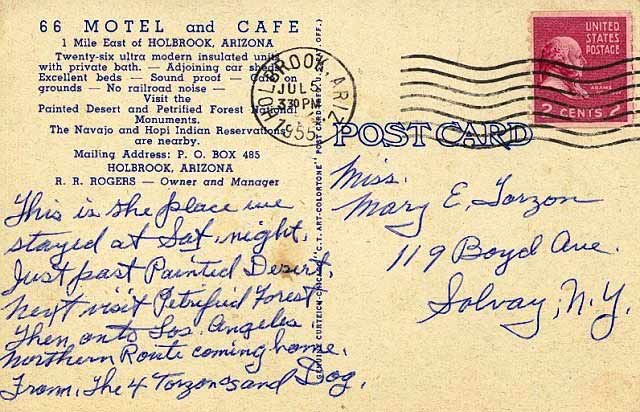 66 MOTEL and CAFE
1 Mile East of HOLBROOK, ARIZONA
Twenty-six ultra modern insulated units
with private bath. — Adjoining car sheds
Excellent beds — Sound proof — on
grounds — No railroad noise —
Visit the
Painted Desert and Petrified Forest National
Monuments.
The Navajo and Hopi Indian Reservations
are nearby.
Mailing Address: P. O. BOX 485
HOLBROOK, ARIZONA
R. R. ROGERS — Owner and Manager
This is the place we
stayed at Sat. night.
Just past Painted Desert,
next visit Petrified Forest
Then onto Los Angeles
Northern Route coming home.
From, The 4 Torzons and Dog.
GENUINE CURTEICH-CHICAGO "C. T. ART-COLORTONE" POST CARD (REG. U. S. PAT. OFF.)
HOLBROOK, ARIZ.
JUL
330 PM
1955
UNITED
STATES
POSTAGE
ADAMS
2 CENTS 2
POST CARD
Miss.
Mary E. Torzon
119 Boyd Ave.
Solvay, N.Y.